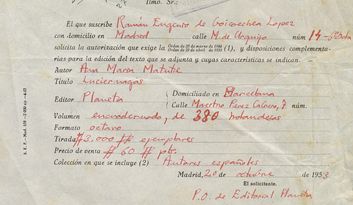 Ilmo. Sr.:
El que suscribe Ramón Eugenio de Goicoechea Lopez
con domicilio en Madrid calle M. de Urquijo núm 14-
solicita la autorización que exige la Orden de 29 de marzo de 1938 (1), y disposiciones complementa-
Orden de 29 de abril de 1938
rias para la edición del texto que se adjunta y cuyas características se indican.
Autor Ana María Matute
Título Luciernagas
Editor Planeta Domiciliado en Barcelona
Calle Maestro Perez Cabrero, 7 núm.
Volumen encuadernado, de 380 holandesas
Formato octavo
Tirada #3.000# ejemplares
Precio de venta #60# pts.
Colección en que se incluye (2) Autores españoles
Madrid, 20 octubre de 1953
El solicitante.
P.O. de Editorial Planeta